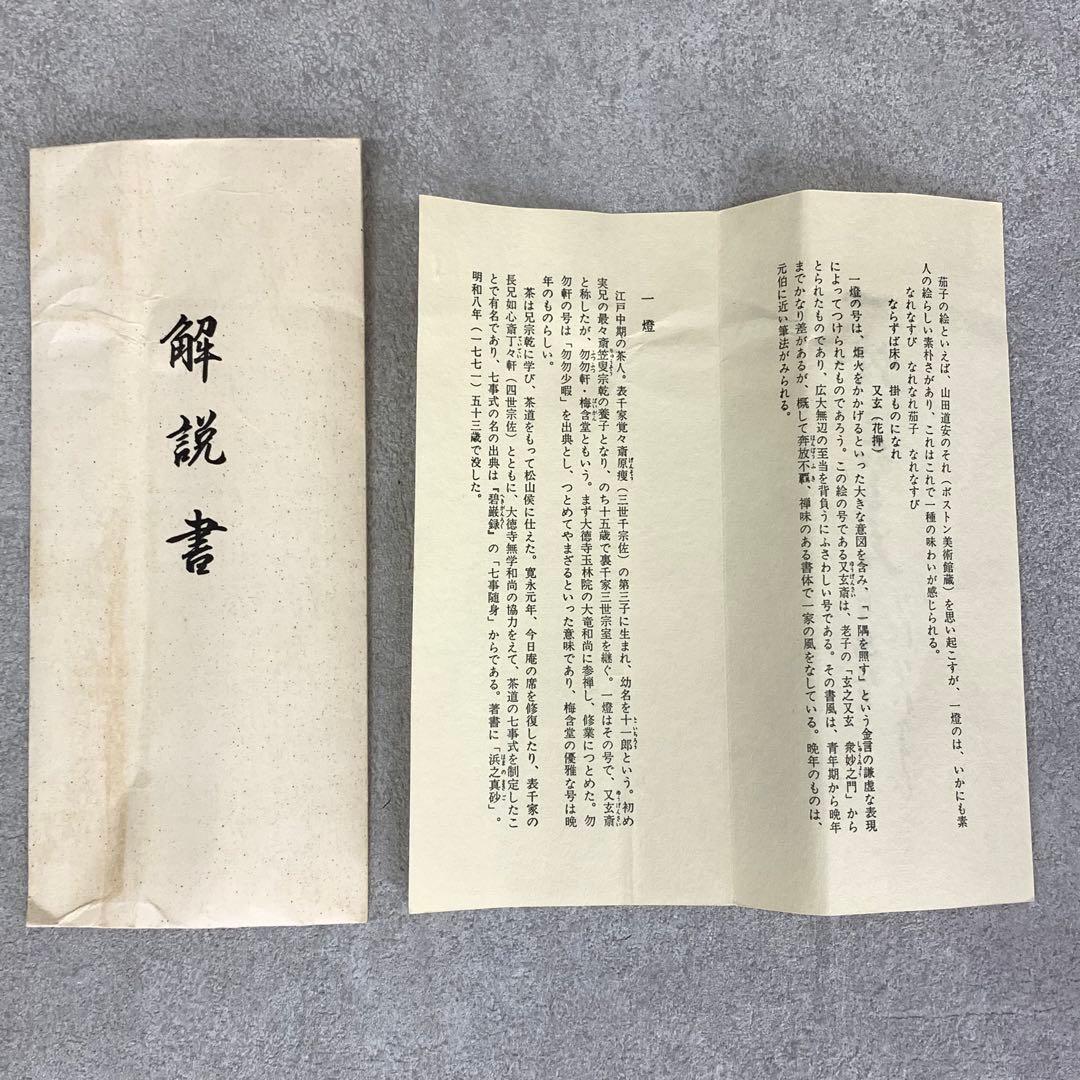 解説書
茄子の絵といえば、山田道安のそれ（ボストン美術館蔵）を思い起こすが、一燈のは、いかにも素
人の絵らしい素朴さがあり、これはこれで一種の味わいが感じられる。
なれなすび なれなれ茄子 なれなすび
ならずば床の 掛ものになれ
又玄（花押）
一燈の号は、炬火をかかげるといった大きな意図を含み、「一隅を照す」という金言の謙虚な表現
によってつけられたものであろう。この絵の号である又玄斎は、老子の「玄之又玄 衆妙之門」から
とられたものであり、広大無辺の至当を背負うにふさわしい号である。その書風は、青年期から晩年
までかなり差があるが、概して奔放不羈、禅味のある書体で一家の風をなしている。晩年のものは、
元伯に近い筆法がみられる。
一燈
江戸中期の茶人。表千家覚々斎原叟（三世千宗佐）の第三子に生まれ、幼名を十一郎という。初め
実兄の最々斎竺叟宗乾の養子となり、のち十五歳で裏千家三世宗室を継ぐ。一燈はその号で、又玄斎
と称したが、勿勿軒・梅含堂ともいう。まず大徳寺玉林院の大竜和尚に参禅し、修業につとめた。勿
勿軒の号は「勿勿少暇」を出典とし、つとめてやまざるといった意味であり、梅含堂の優雅な号は晩
年のものらしい。
茶は兄宗乾に学び、茶道をもって松山侯に仕えた。寛永元年、今日庵の席を修復したり、表千家の
長兄如心斎丁々軒（四世宗佐）とともに、大徳寺無学和尚の協力をえて、茶道の七事式を制定したこ
とで有名であり、七事式の名の出典は『碧巌録』の「七事随身」からである。著書に「浜之真砂」。
明和八年（一七七一）五十三歳で没した。